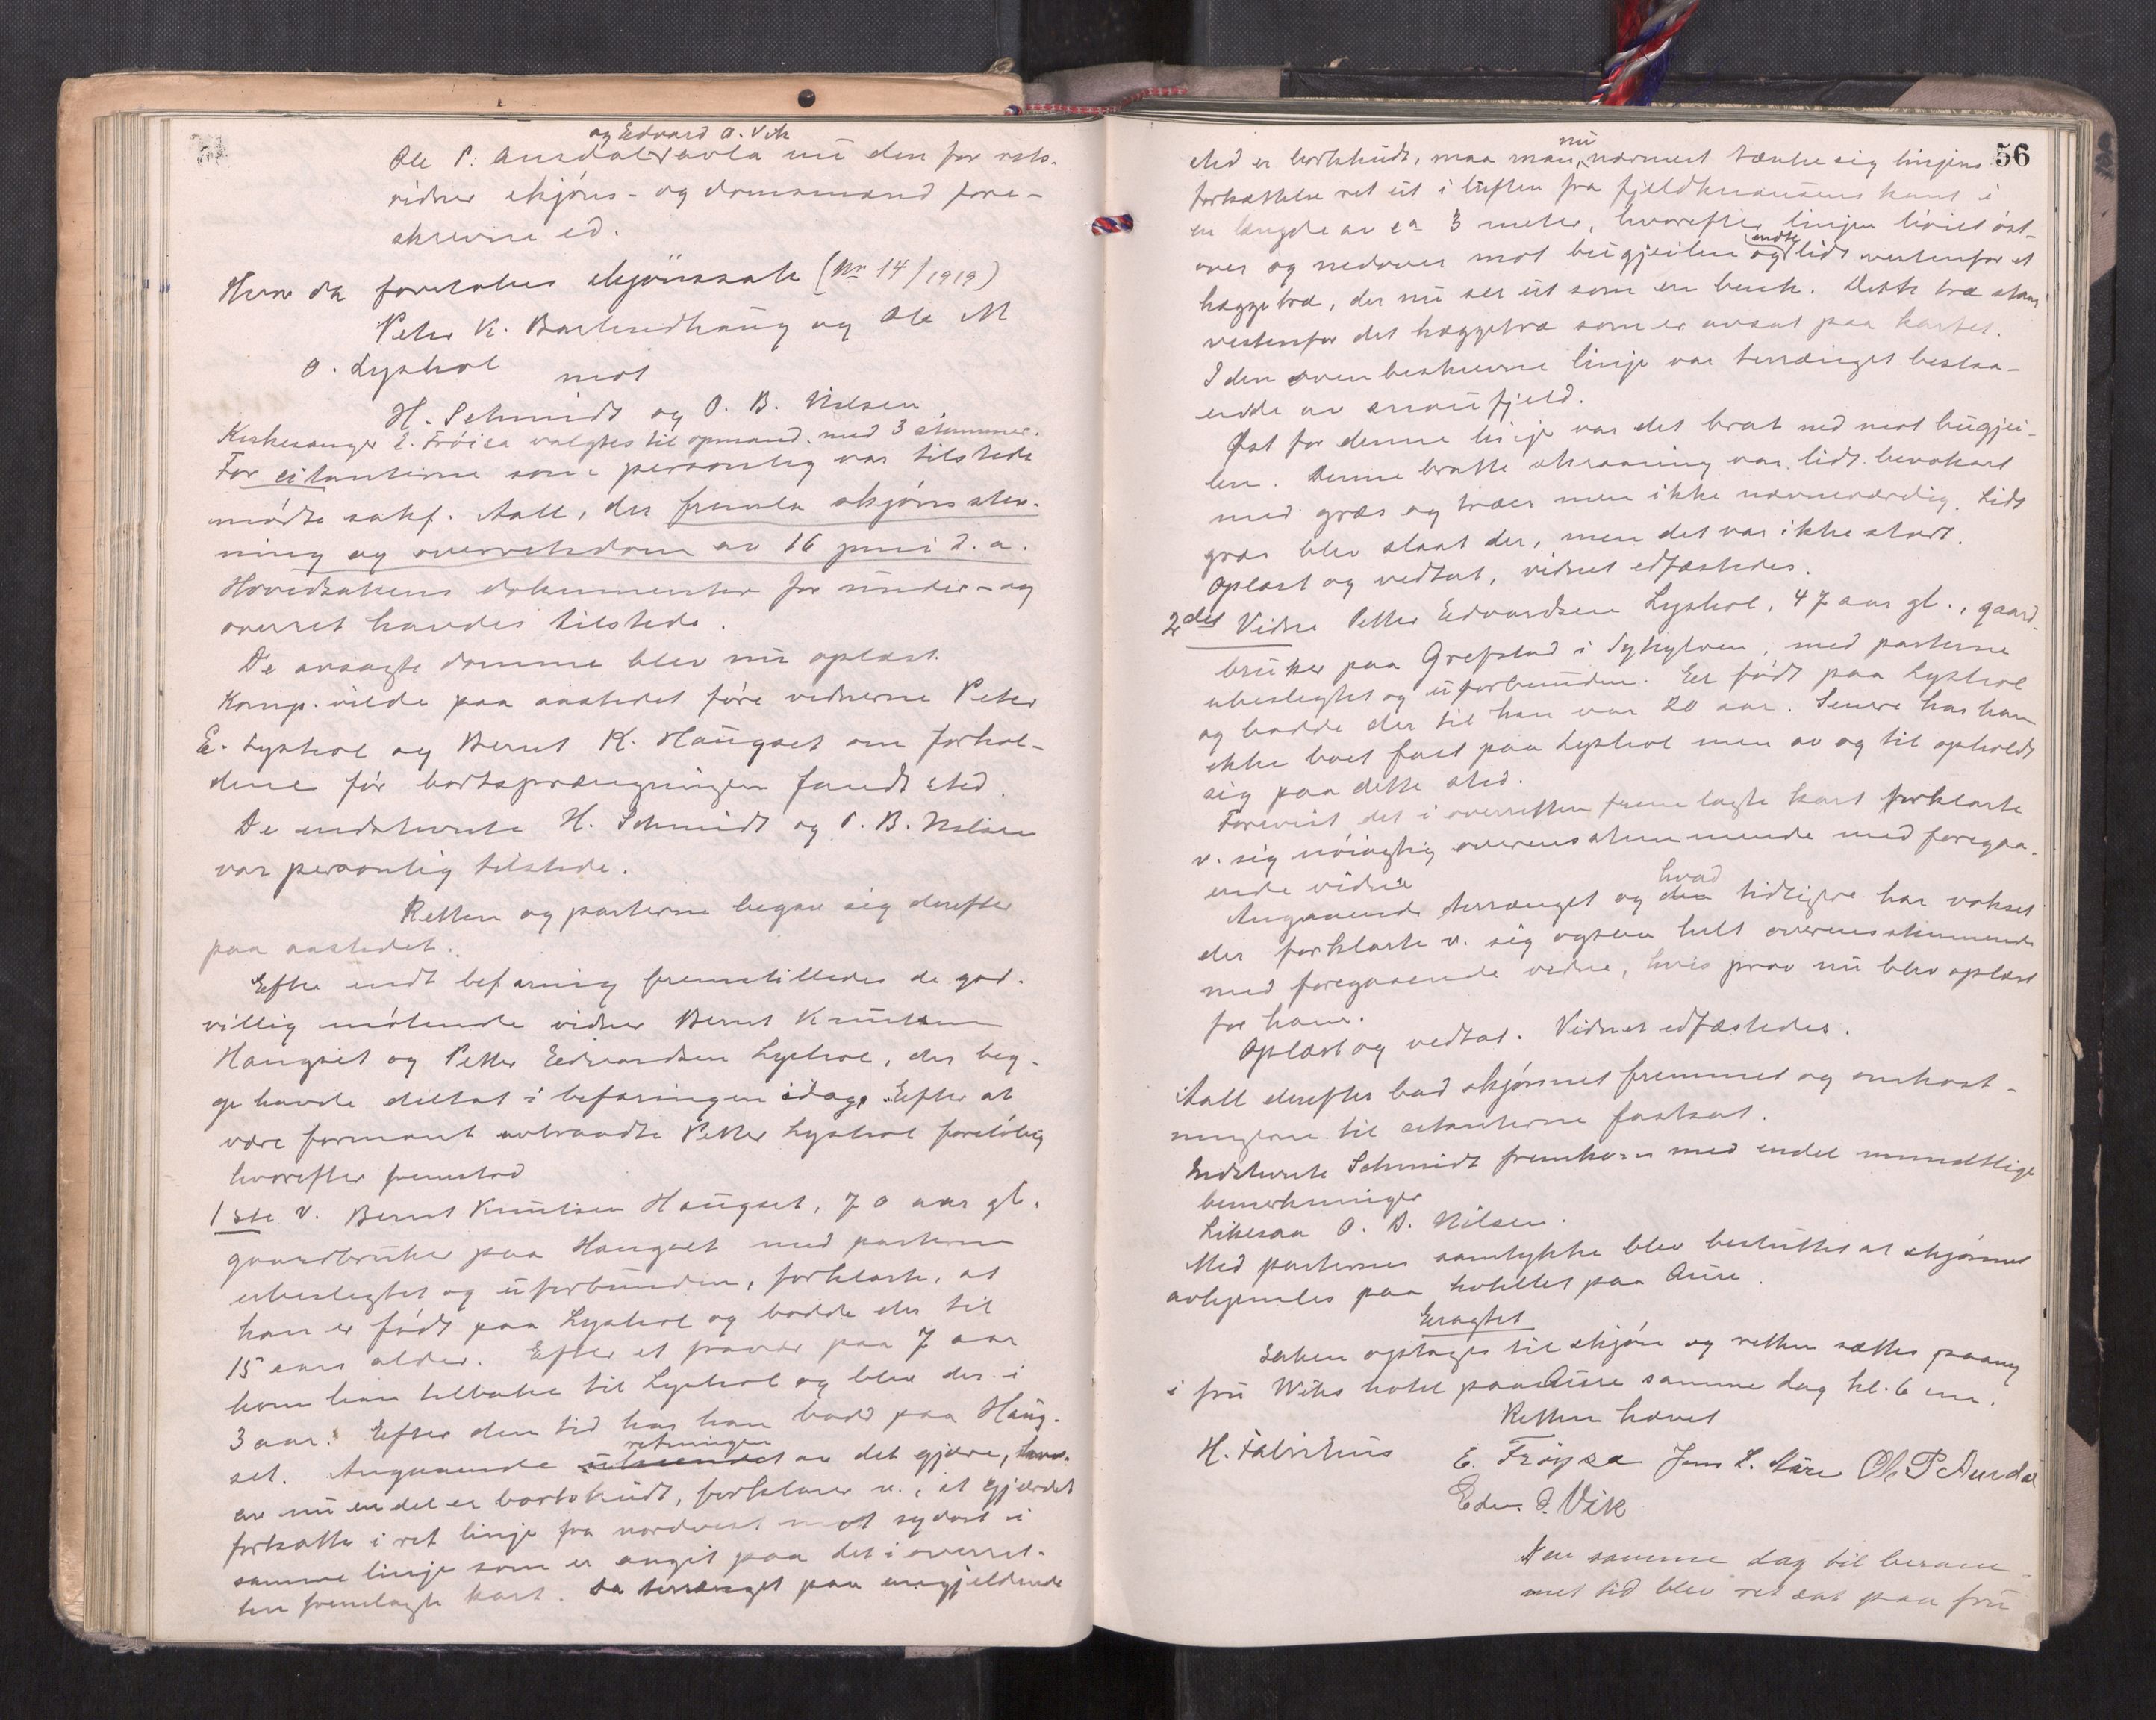 og Edvard O. Vik
Ole P. Aursdal avla nu den for rets-
vidner skjöns- og domsmænd fore-
skrevne ed.
Hvor da foretokes skjönssak (Nr 14/1919)
Peter K. Barhaughaug og Ole M
O. Lyshol
mot
H. Schmidt og O. B. Nilsen
Kirkesanger E. Fröisa valgtes til opmand. med 3 stemmer.
For citanterne som personlig var tilstede
mödte sakf. Aall, der fremla skjönsstev-
ning og overretsdom av 16 juni d. a.
Hovedsakens dokumenter for under- og
overret havdes tilstede.
De avsagte domme blev nu oplæst.
Komp. vilde paa aastedet före vidnerne Peter
E. Lyshol og Bernt K. Haugset om forhol-
dene för bortsprængningen fandt sted.
De indstevnte H. Schmidt og O. B. Nilsen
var personlig tilstede.
Retten og parterne begav sig derefter
paa aastedet.
Efter endt befaring fremstilledes de god-
villig mötende vidner Bernt Knutsen
Haugset og Petter Edvardsen Lyshol, der beg-
ge havde deltat i befaringen idag. Efter at
være formanet uttraadte Petter Lyshol foreløbig
hvorefter fremstod
1ste V. Bernt Knutsen Haugset, 70 aar gl.
gaardbruker paa Haugset med parterne
ubeslegtet og uforbunden, forklarte, at
han er född paa Lyshol og bodde der til
15 aars alder. Efter et fravær paa 7 aar
kom han tilbake til Lyshol og blev der i
3 aar. Efter den tid har han bodd paa Haug-
retningen
set. Angaaende av det gjære, hvor-
av nu en del er bortskudt, forklarer v., at gjærdet
fortsatte i ret linje fra nordvest mot sydost i
samme linje som er angit paa det i overret-
ten fremlagte kart. Da terrænget paa angjeldende
56
nu
sted er bortskudt, maa man nærmest tænke sig linjens
fortsættelse ret ut i luften fra fjeldknausens kant i
en længde av ca 3 meter, hvorefter linjen böiet öst-
endte
over og nedover mot bugjeilen og lidt vestenfor et
hæggetræ, der nu ser ut som en busk. Dette træ staar
vestenfor det hæggetræ som er avsat paa kartet.
I den ovenbeskrevne linje var terrænget bestaa-
ende av snaufjeld.
Øst for denne linje var det brat ned mot bugjei-
len. Denne bratte skraaning var lidt bevokset
med græs og træer men ikke nævneværdig. Lidt
græs blev slaat der, men det var ikke stort.
Oplæst og vedtat, vidnet edfæstedes.
2det Vidne Petter Edvardsen Lyshol, 47 aar gl., gaard-
bruker paa Grefstad i Sykylven, med parterne
ubeslegtet og uforbunden. Er född paa Lyshol
og bodde der til han var 20 aar. Senere har han
ikke boet fast paa Lyshol men av og til opholdt
sig paa dette sted.
Forevist det i overretten fremlagte kart forklarte
v. sig nöiagtig overensstemmende med foregaa-
ende vidne
hvad
Angaaende terrænget og tidligere har vokset
der forklarte v. sig ogsaa helt overensstemmende
med foregaaende vidne, hvis prov nu blev oplæst
for ham.
Oplæst og vedtat. Vidnet edfæstedes.
Aall derefter bad skjønnet fremmet og omkost-
ningerne til citanterne fastsat.
Indstevnte Schmidt fremkom med endel mundtlige
bemerkninger
Likesaa O. B. Nilsen.
Med parternes samtykke blev besluttet at skjønnet
avhjemles paa hotellet paa Aure.
Eragtet
Saken optages til skjön og retten sættes paany
i fru Wiks hotel paa Aure samme dag kl. 6 em.
Retten hævet
H. Fabritius E. Fröysa Jens L. Aure Ole P Aursdal
Edv. O. Vik
Aar samme dag til beram-
met tid blev ret sat paa fru